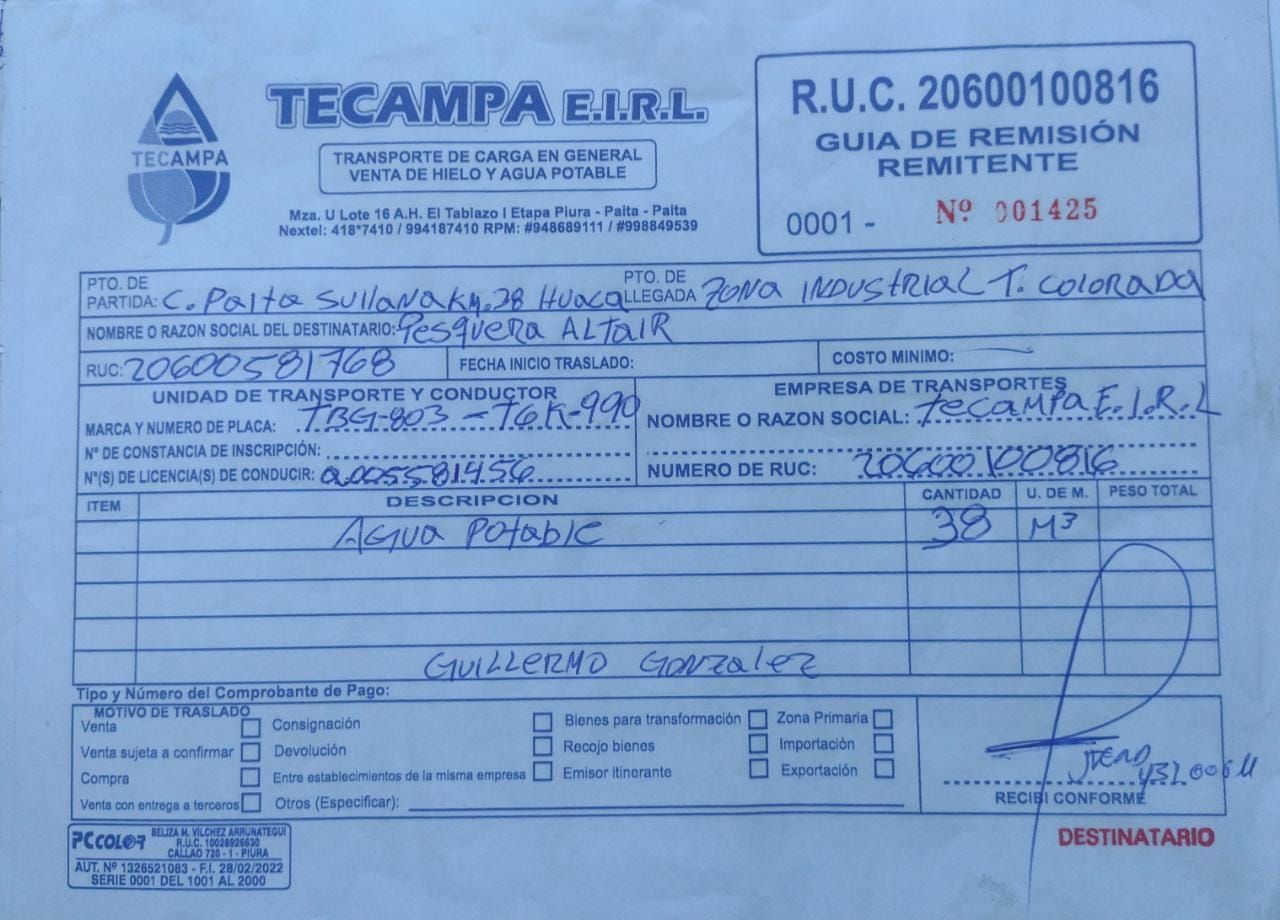 TECAMPA
TECAMPA E.I.R.L.
TRANSPORTE DE CARGA EN GENERAL
VENTA DE HIELO Y AGUA POTABLE
Mza. U Lote 16 A.H. El Tablazo I Etapa Piura - Paita - Paita
Nextel: 418*7410 / 994187410 RPM: #948689111 / #998849539
R.U.C. 20600100816
GUIA DE REMISIÓN
REMITENTE
0001 - Nº 001425
PTO. DE PARTIDA: C. Paita Sullana Km. 38 Huaca PTO. DE LLEGADA ZONA INDUSTRIAL T. COLORADA
NOMBRE O RAZON SOCIAL DEL DESTINATARIO: Pesquera ALTAIR
RUC: 20600581768 FECHA INICIO TRASLADO: COSTO MINIMO:
UNIDAD DE TRANSPORTE Y CONDUCTOR
MARCA Y NUMERO DE PLACA: TBG-803 - T6K-990
Nº DE CONSTANCIA DE INSCRIPCIÓN:
Nº(S) DE LICENCIA(S) DE CONDUCIR: Q005581456
EMPRESA DE TRANSPORTES
NOMBRE O RAZON SOCIAL: Tecampa E.I.R.L
NUMERO DE RUC: 20600100816
ITEM DESCRIPCION CANTIDAD U. DE M. PESO TOTAL
Agua Potable 38 M³
GUILLERMO GONZALEZ
Tipo y Número del Comprobante de Pago:
MOTIVO DE TRASLADO
Venta Consignación Bienes para transformación Zona Primaria
Venta sujeta a confirmar Devolución Recojo bienes Importación
Compra Entre establecimientos de la misma empresa Emisor itinerante Exportación
Venta con entrega a terceros Otros (Especificar):
RECIBI CONFORME
DESTINATARIO
PCCOLOR BELIZA M. VILCHEZ ARRUNATEGUI
R.U.C. 10028926630
CALLAO 720 - 1 - PIURA
AUT. Nº 1326521083 - F.I. 28/02/2022
SERIE 0001 DEL 1001 AL 2000